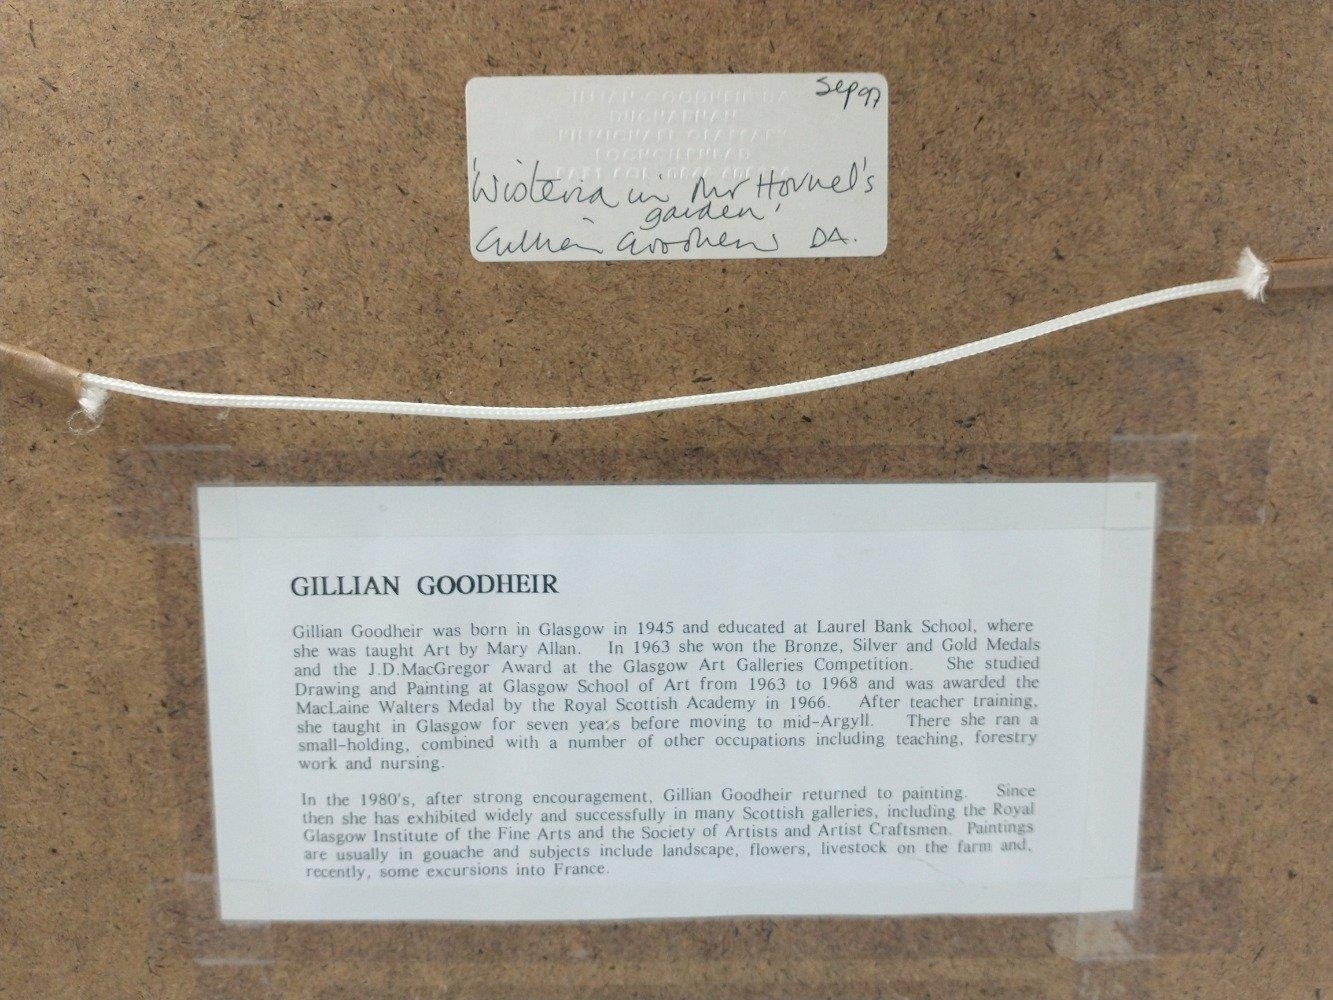 Sep 97
GILLIAN GOODHEIR DA
KILMICHAEL GLASSARY
LOCHGILPHEAD
'Wisteria in Mr Hornel's
garden'
Gillian Goodheir DA.
GILLIAN GOODHEIR
Gillian Goodheir was born in Glasgow in 1945 and educated at Laurel Bank School, where
she was taught Art by Mary Allan. In 1963 she won the Bronze, Silver and Gold Medals
and the J.D.MacGregor Award at the Glasgow Art Galleries Competition. She studied
Drawing and Painting at Glasgow School of Art from 1963 to 1968 and was awarded the
MacLaine Walters Medal by the Royal Scottish Academy in 1966. After teacher training,
she taught in Glasgow for seven years before moving to mid-Argyll. There she ran a
small-holding, combined with a number of other occupations including teaching, forestry
work and nursing.
In the 1980's, after strong encouragement, Gillian Goodheir returned to painting. Since
then she has exhibited widely and successfully in many Scottish galleries, including the Royal
Glasgow Institute of the Fine Arts and the Society of Artists and Artist Craftsmen. Paintings
are usually in gouache and subjects include landscape, flowers, livestock on the farm and,
recently, some excursions into France.